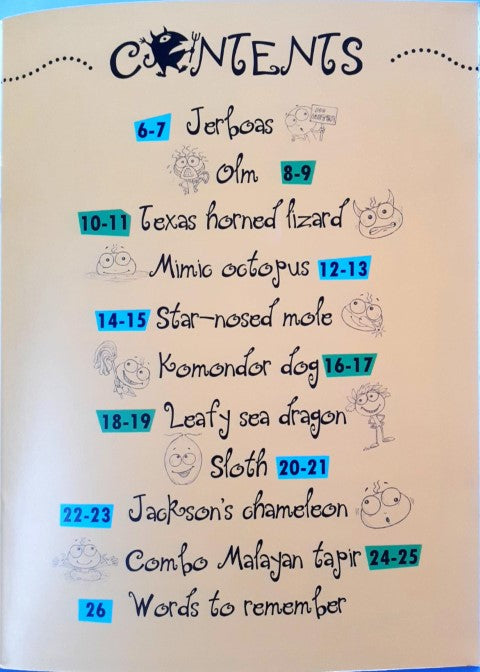 CONTENTS
6-7 Jerboas
Olm 8-9
10-11 Texas horned lizard
Mimic octopus 12-13
14-15 Star-nosed mole
Komondor dog 16-17
18-19 Leafy sea dragon
Sloth 20-21
22-23 Jackson's chameleon
Combo Malayan tapir 24-25
26 Words to remember